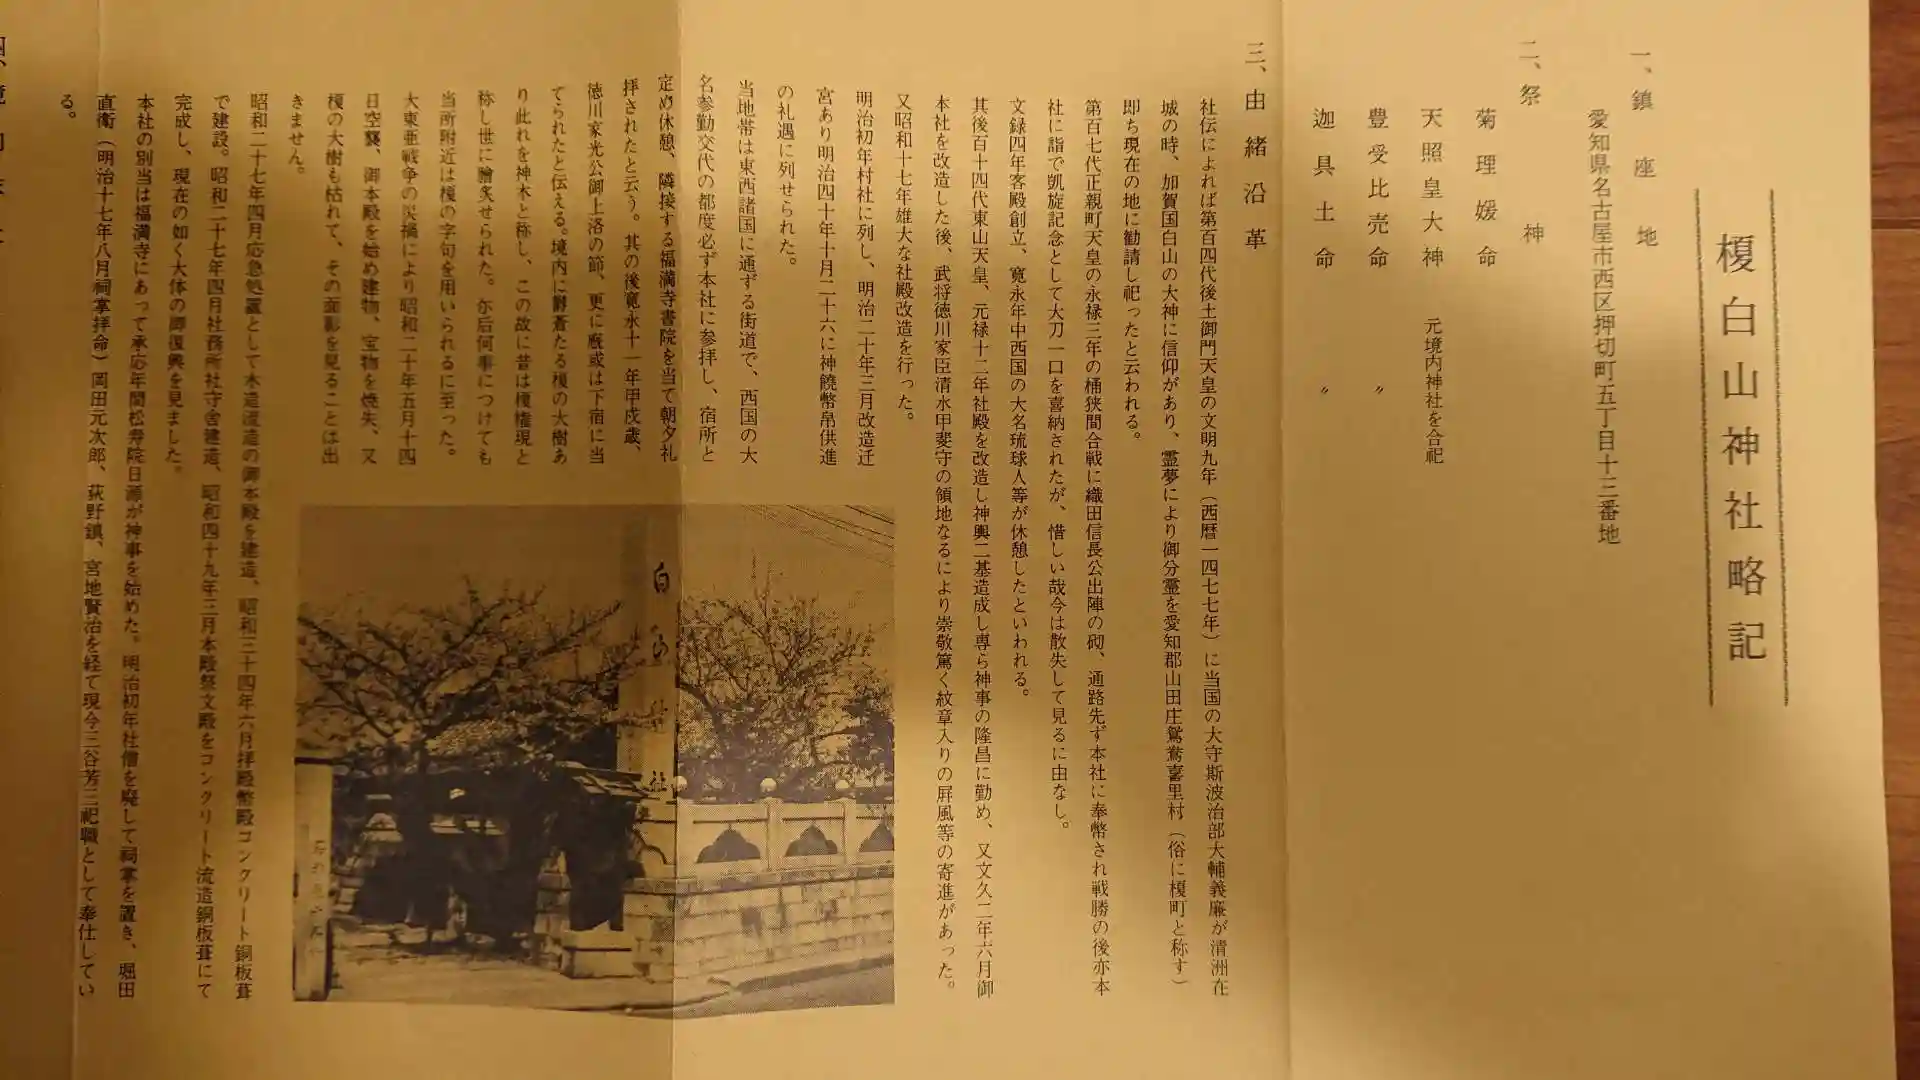 榎白山神社略記
一、鎮座地
愛知県名古屋市西区押切町五丁目十三番地
二、祭神
菊理媛命
天照皇大神 元境内神社を合祀
豊受比売命 〃
迦具土命 〃
三、由緒沿革
社伝によれば第百四代後土御門天皇の文明九年(西暦一四七七年)に当国の大守斯波治部大輔義廉が清洲在
城の時、加賀国白山の大神に信仰があり、霊夢により御分霊を愛知郡山田庄鴛鴦喜里村(俗に榎町と称す)
即ち現在の地に勧請し祀ったと云われる。
第百七代正親町天皇の永禄三年の桶狭間合戦に織田信長公出陣の砌、通路先ず本社に奉幣され戦勝の後亦本
社に詣で凱旋記念として大刀一口を喜納されたが、惜しい哉今は散失して見るに由なし。
文録四年客殿創立、寛永年中西国の大名琉球人等が休憩したといわれる。
其後百十四代東山天皇、元禄十二年社殿を改造し神輿二基造成し専ら神事の隆昌に勤め、又文久二年六月御
本社を改造した後、武将徳川家臣清水甲斐守の領地なるにより崇敬篤く紋章入りの屏風等の寄進があった。
又昭和十七年雄大な社殿改造を行った。
明治初年村社に列し、明治二十年三月改造迁
宮あり明治四十年十月二十六に神饒幣帛供進
の礼遇に列せられた。
当地帯は東西諸国に通ずる街道で、西国の大
名参勤交代の都度必ず本社に参拝し、宿所と
定め休憩、隣接する福満寺書院を当て朝夕礼
拝されたと云う。其の後寛永十一年甲戌歳、
徳川家光公御上洛の節、更に廐或は下宿に当
てられたと伝える。境内に欝蒼たる榎の大樹あ
り此れを神木と称し、この故に昔は榎権現と
称し世に膾炙せられた。尓后何事につけても
当所附近は榎の字句を用いられるに至った。
大東亜戦争の災禍により昭和二十年五月十四
日空襲、御本殿を始め建物、宝物を焼失、又
榎の大樹も枯れて、その面影を見ることは出
きません。
昭和二十七年四月応急処置として木造流造の御本殿を建造、昭和三十四年六月拝殿幣殿コンクリート銅板葺
で建設。昭和二十七年四月社務所社守舎建造、昭和四十九年三月本殿祭文殿をコンクリート流造銅板葺にて
完成し、現在の如く大体の御復興を見ました。
本社の別当は福満寺にあって承応年間松寿院日源が神事を始めた。明治初年社僧を廃して祠掌を置き、堀田
直衛(明治十七年八月祠掌拝命)岡田元次郎、荻野鎮、宮地賢治を経て現今三谷芳三祀職として奉仕してい
る。
白山神社